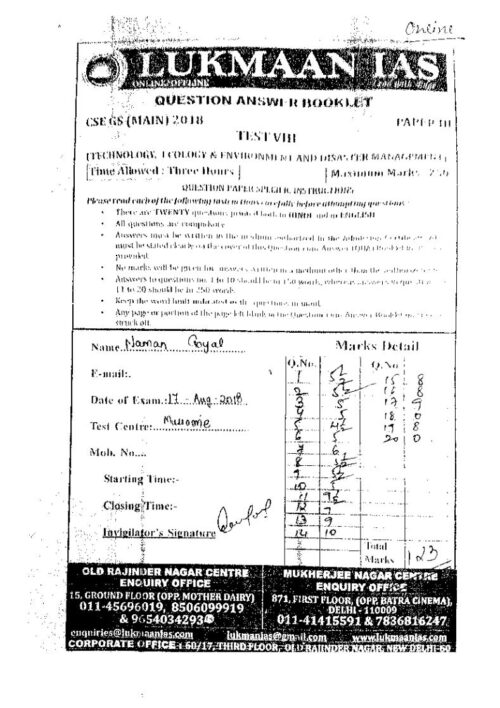 Online
LUKMAAN IAS
ONLINE/OFFLINE
QUESTION ANSWER BOOKLET
CSE GS (MAIN) 2018 PAPER III
TEST VIII
(TECHNOLOGY, ECOLOGY & ENVIRONMENT AND DISASTER MANAGEMENT)
Time Allowed : Three Hours Maximum Marks : 250
QUESTION PAPER SPECIFIC INSTRUCTIONS
Please read each of the following instructions carefully before attempting questions :
• There are TWENTY questions printed both in HINDI and in ENGLISH
• All questions are compulsory
• Answers must be written in the medium authorized in the Admission Certificate
must be stated clearly on the cover of this Question-cum-Answer (QCA) Booklet in
provided.
• No marks will be given for answers written in a medium other than the authorized
• Answers to questions no. 1 to 10 should be in 150 words, whereas answers to
11 to 20 should be in 250 words.
• Keep the word limit indicated in the questions in mind.
• Any page or portion of the page left blank in the Question-cum-Answer Booklet
struck off.
Name Naman Goyal
Marks Detail
Q.No. Q.No
E-mail:.
Date of Exam.: 17 - Aug - 2018
Test Centre: Mussorie
Mob. No....
Starting Time:-
Closing Time:-
Invigilator's Signature
1 15 8
2 16 8
3 5 17 9
4 5 18 0
5 4½ 19 8
6 5 20 0
7 6
8
9
10 5
11 9½
12 7
13 9
14 10
Total Marks 123
OLD RAJINDER NAGAR CENTRE
ENQUIRY OFFICE
15, GROUND FLOOR (OPP. MOTHER DAIRY)
011-45696019, 8506099919
& 9654034293
MUKHERJEE NAGAR CENTRE
ENQUIRY OFFICE
871, FIRST FLOOR, (OPP. BATRA CINEMA),
DELHI - 110009
011-41415591 & 7836816247
enquiries@lukmaanias.com lukmanias@gmail.com www.lukmaanias.com
CORPORATE OFFICE : 60/17, THIRD FLOOR, OLD RAJINDER NAGAR, NEW DELHI-60